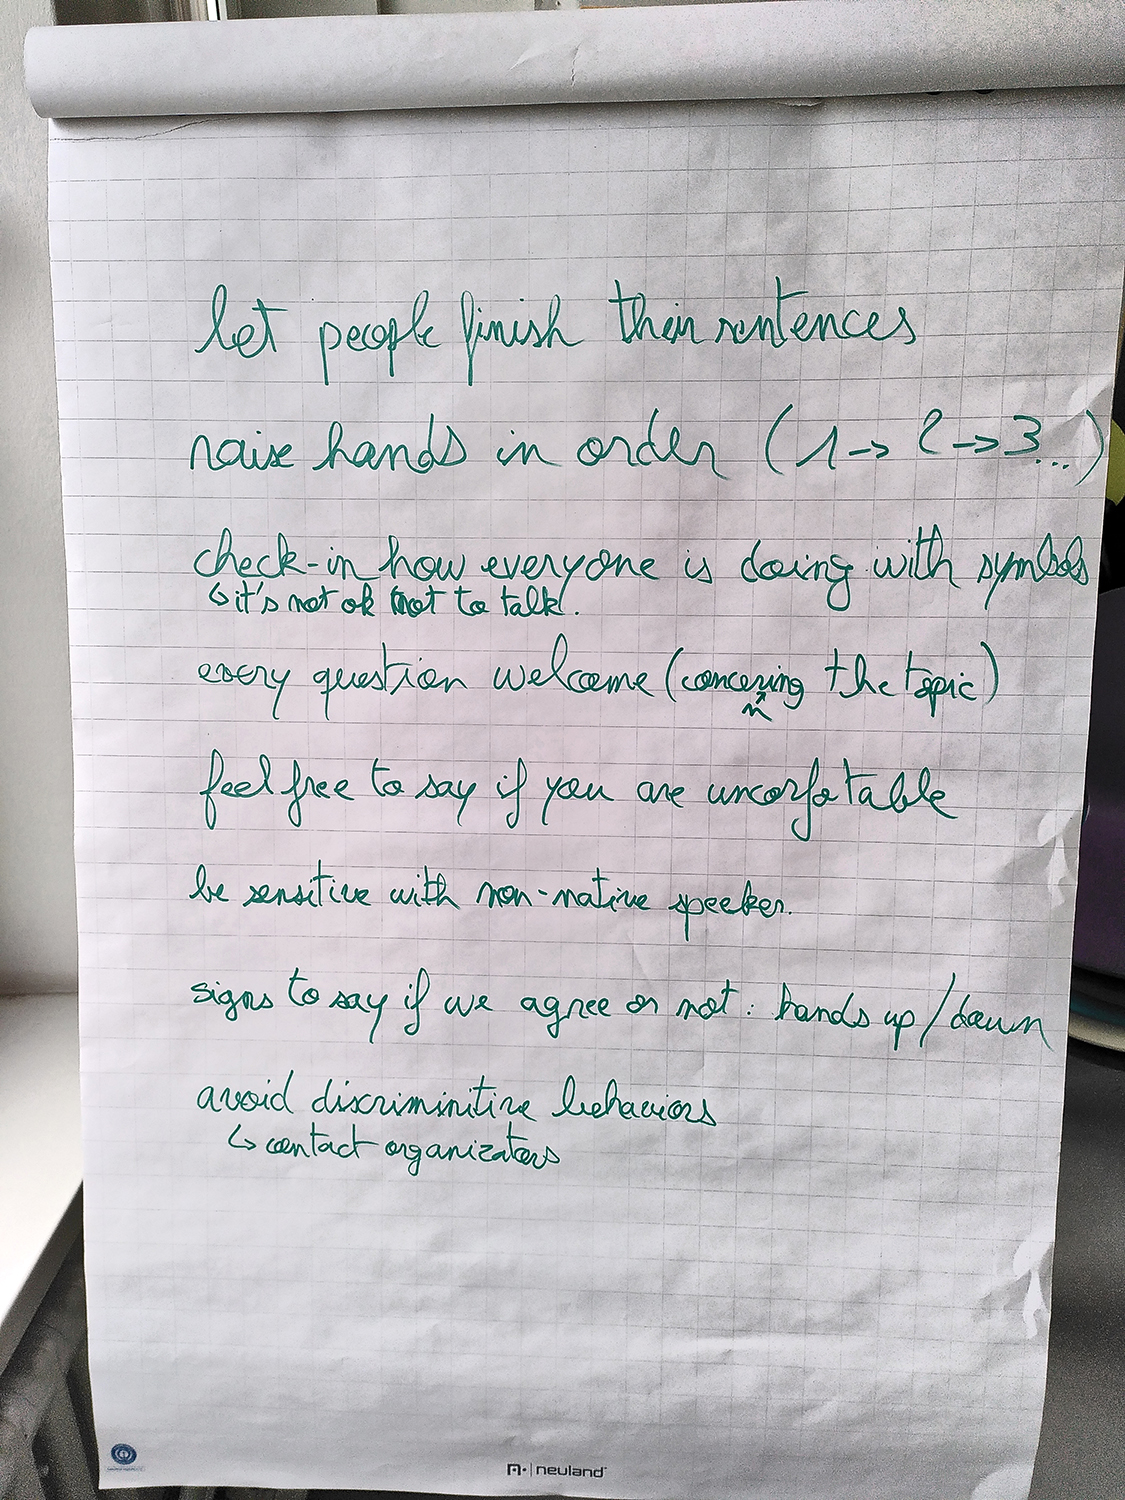 let people finish their sentences
raise hands in order (1 → 2 → 3...)
check-in how everyone is doing with symbols
↳ it's not ok not to talk.
every question welcome (concering the topic)
n
feel free to say if you are uncorfotable
be sensitive with non-native speeker.
signs to say if we agree or not : hands up/down
avoid discriminitive behaviors
↳ contact organizators
neuland